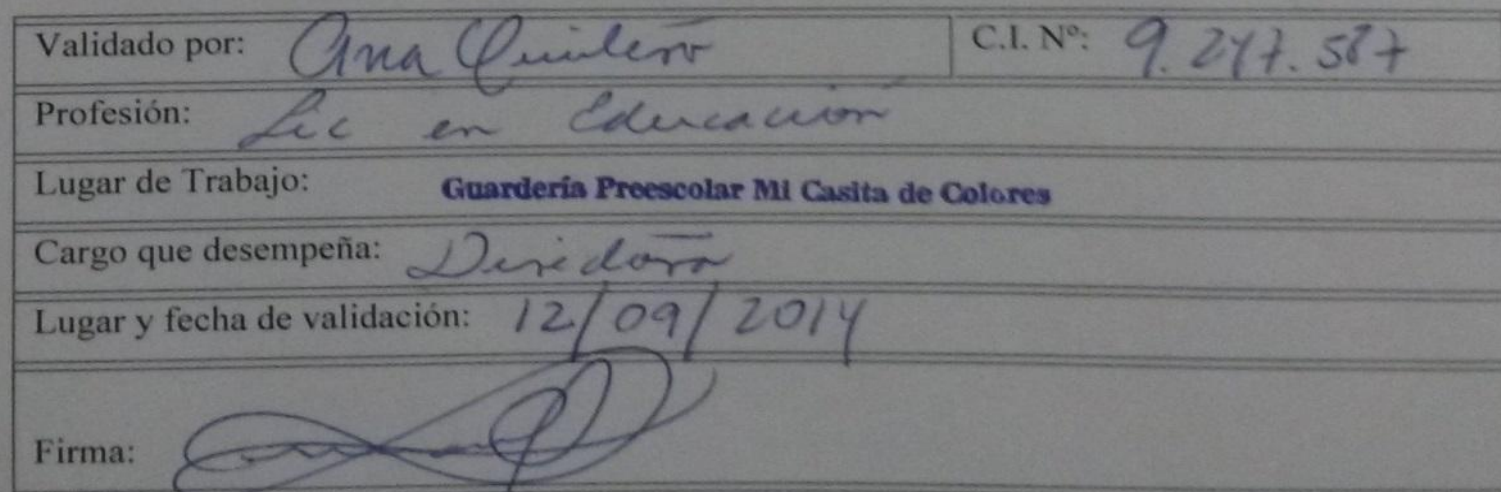 Validado por: Ana Quintero C.I. Nº: 9.247.587
Profesión: Lic en Educación
Lugar de Trabajo: Guardería Preescolar Mi Casita de Colores
Cargo que desempeña: Directora
Lugar y fecha de validación: 12/09/2014
Firma: